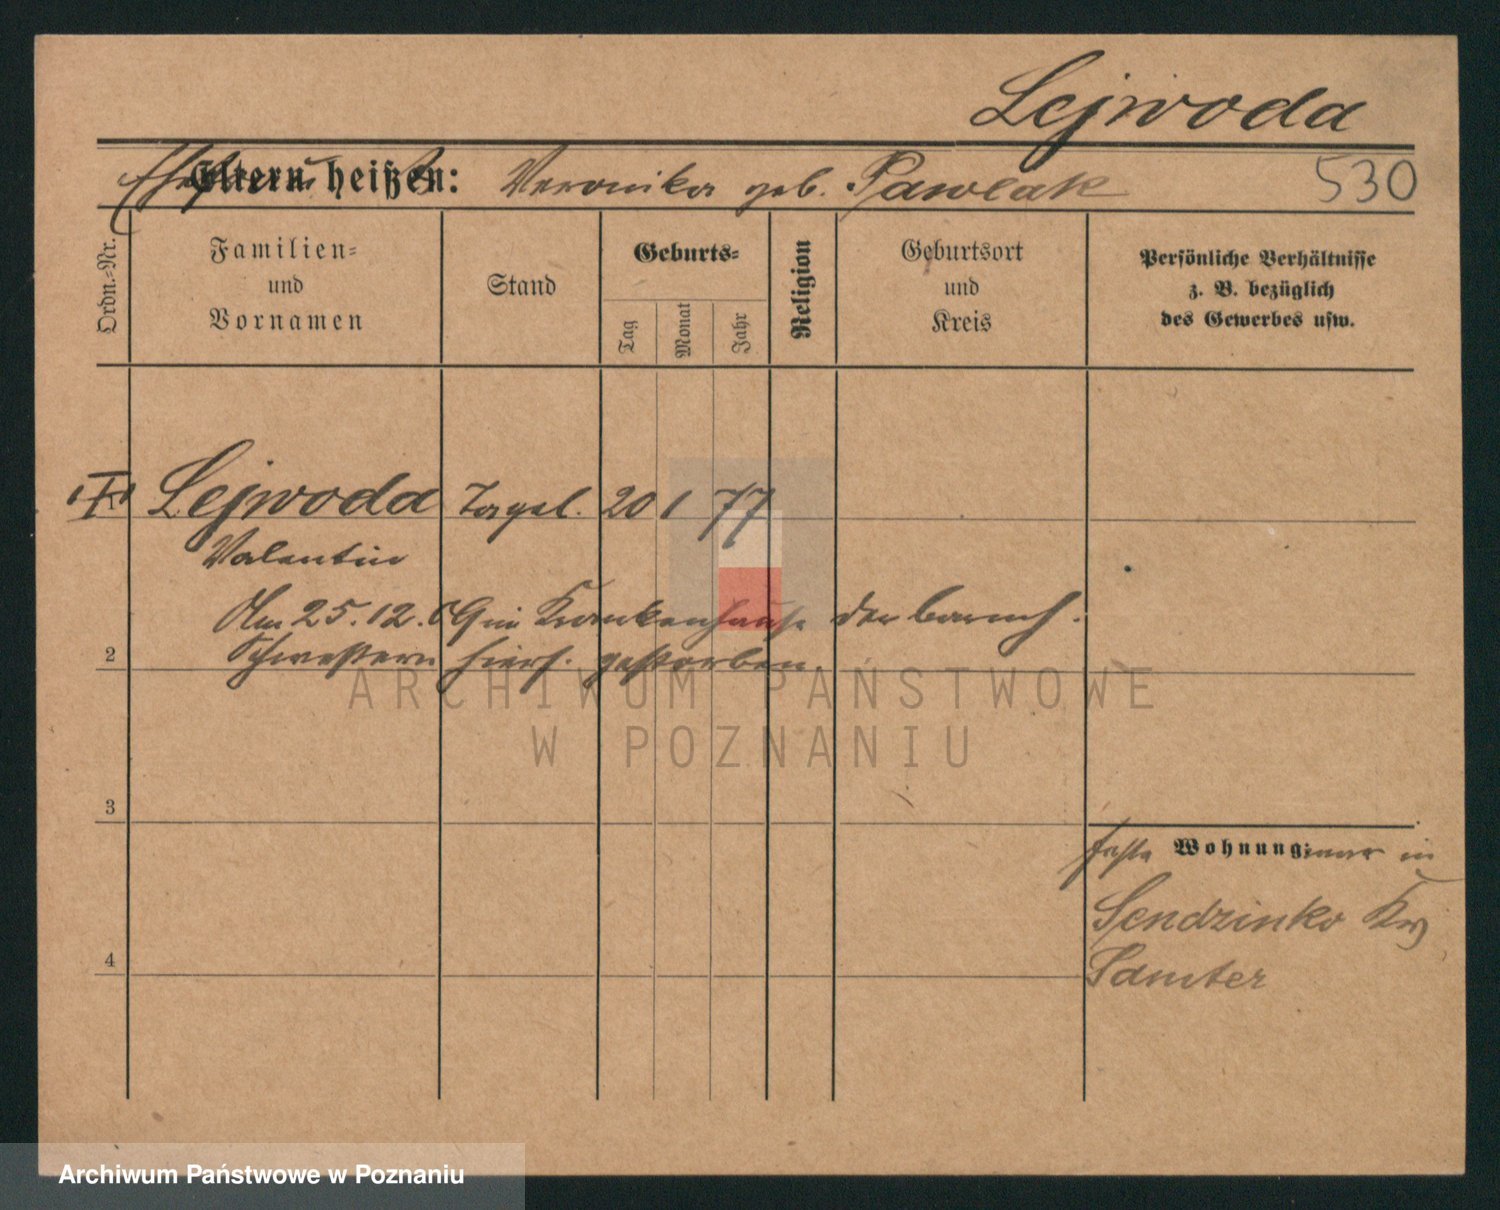 Lejwoda
Eltern heißen: Veronika geb. Pawlak 530
Ordn.-Nr.
Familien-
und
Vornamen
Stand
Geburts-
Tag
Monat
Jahr
Religion
Geburtsort
und
Kreis
Persönliche Verhältnisse
z. B. bezüglich
des Gewerbes usw.
Lejwoda Tagel. 20 1 77
Valentin
Am 25.12.09 im Krankenhause der barmh.
2 Schwestern hiers. gestorben.
ARCHIWUM PAŃSTWOWE
W POZNANIU
3
feste Wohnung: war in
Sendzinko Krs
4 Samter
Archiwum Państwowe w Poznaniu